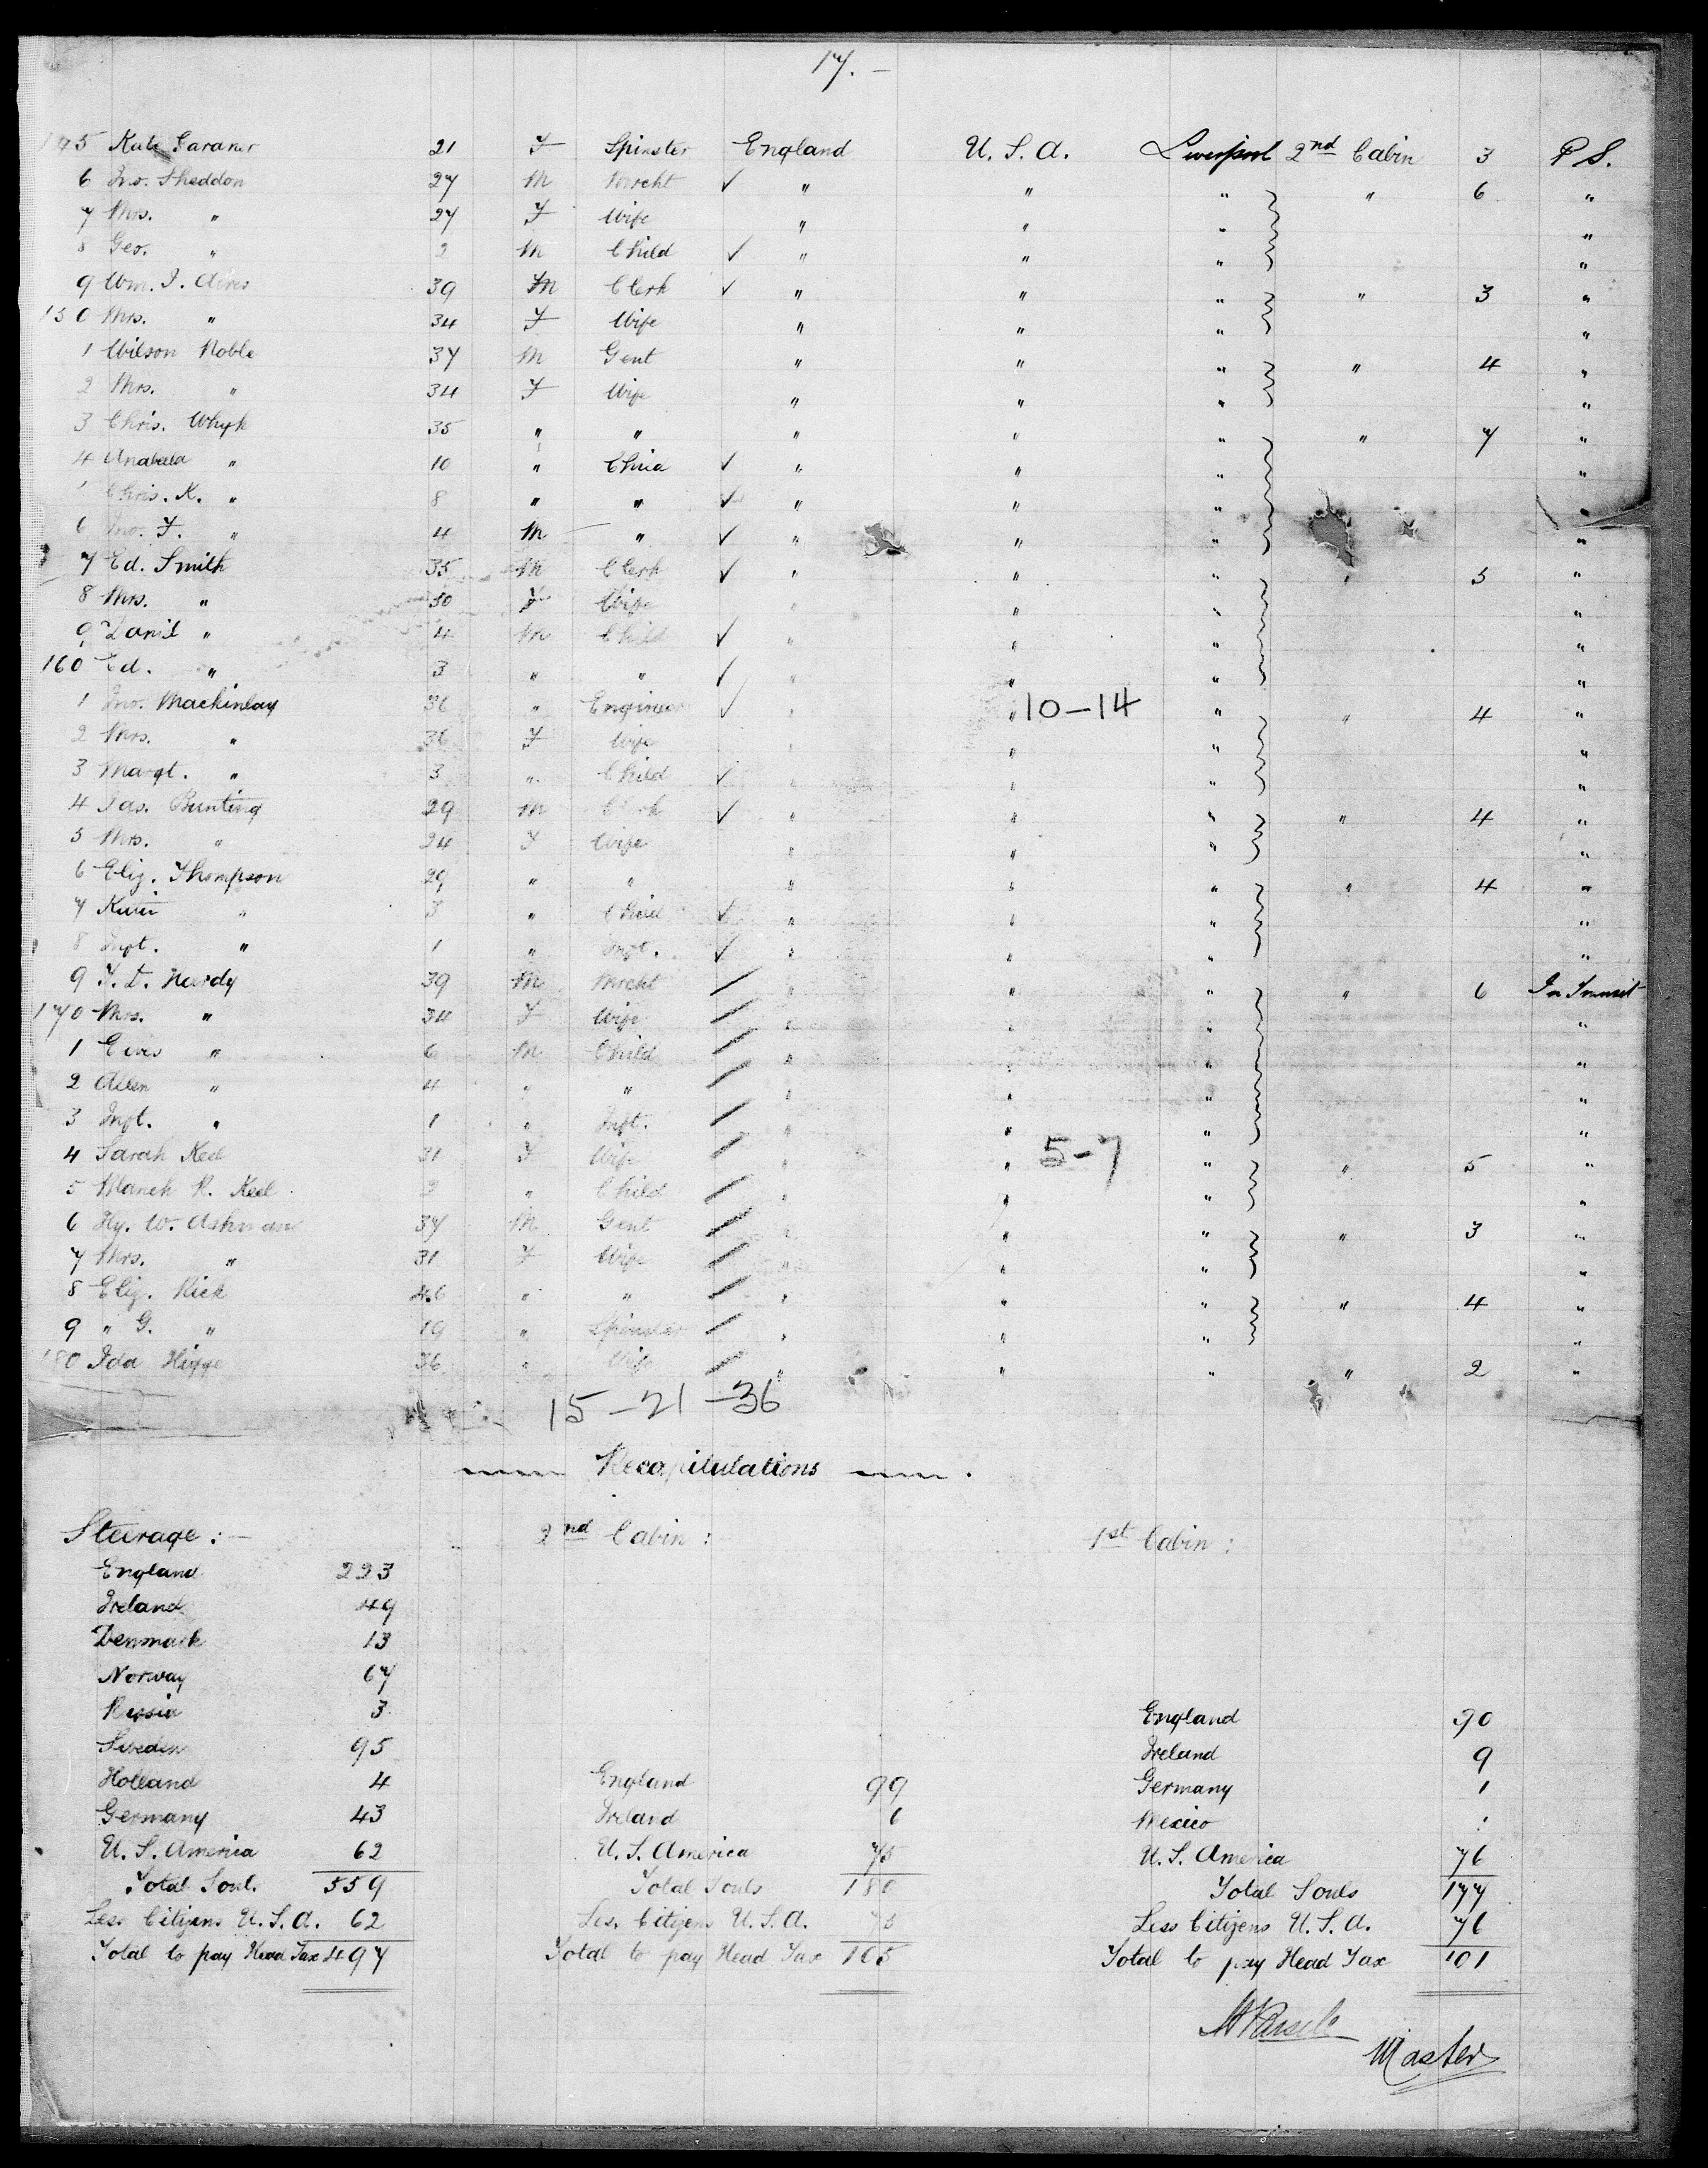 17. -
145 Kate Gardner 21 F Spinster England U. S. A. Liverpool 2nd Cabin 3 P S.
6 Jno. Sheddon 27 M Mrcht ✓ " " " " 6 "
7 Mrs. " 27 F Wife " " " "
8 Geo. " 2 M Child ✓ " " " "
9 Wm. J. Aires 39 M Clerk ✓ " " " " 3 "
150 Mrs. " 34 F Wife " " " "
1 Wilson Noble 37 M Gent " " " " 4 "
2 Mrs. " 34 F Wife " " " "
3 Chris. Whyk 35 " " " " " " 7 "
4 Anabela " 10 " Child ✓ " " " "
Chris. K. " 8 " " ✓ " " " "
6 Jno. F. " 4 M " ✓ " " " "
7 Ed. Smith 35 M Clerk ✓ " " " " 5 "
8 Mrs. " 30 F Wife " " " "
9 Daniel " 4 M Child ✓ " " " "
160 Ed. " 3 " " ✓ " " " "
1 Jno. Mackinlay 36 " Engineer ✓ " " 10-14 " " 4 "
2 Mrs. " 36 F Wife " " " "
3 Margt. " 3 " Child ✓ " " " "
4 Jas. Bunting 29 M Clerk ✓ " " " " 4 "
5 Mrs. " 24 F Wife " " " "
6 Eliz. Thompson 29 " " " " " " 4 "
7 " 3 " Child ✓ " " " "
8 Inft. " 1 " Inft. ✓ " " " "
9 Hardy 39 M Mrcht / " " " " 6 In Transit
170 Mrs. " 34 F Wife / " " " "
1 " 6 M Child / " " " "
2 Allen " 4 " " / " " " "
3 Inft. " 1 " Inft. / " " " "
4 Sarah Keel 31 F Wife / " " 5-7 " " 5 "
5 R. Keel 2 " Child / " " " "
6 Hy. W. Ashman 37 M Gent / " " " " 3 "
7 Mrs. " 31 F Wife / " " " "
8 Eliz. Kick 46 " " / " " " " 4 "
9 " G. " 19 " Spinster / " " " "
180 Ida 36 " Wife / " " " " 2 "
15-21-36
Recapitulations
Steerage :- 2nd Cabin : 1st Cabin :
England 223
Ireland 49
Denmark 13
Norway 67
Russia 3 England 90
Sweden 95 Ireland 9
Holland 4 England 99 Germany 1
Germany 43 Ireland 6 Mexico
U. S. America 62 U. S. America 75 U. S. America 76
Total Souls 559 Total Souls 180 Total Souls 177
Less Citizens U. S. A. 62 Less Citizens U. S. A. 75 Less Citizens U. S. A. 76
Total to pay Head Tax 497 Total to pay Head Tax 105 Total to pay Head Tax 101
Master